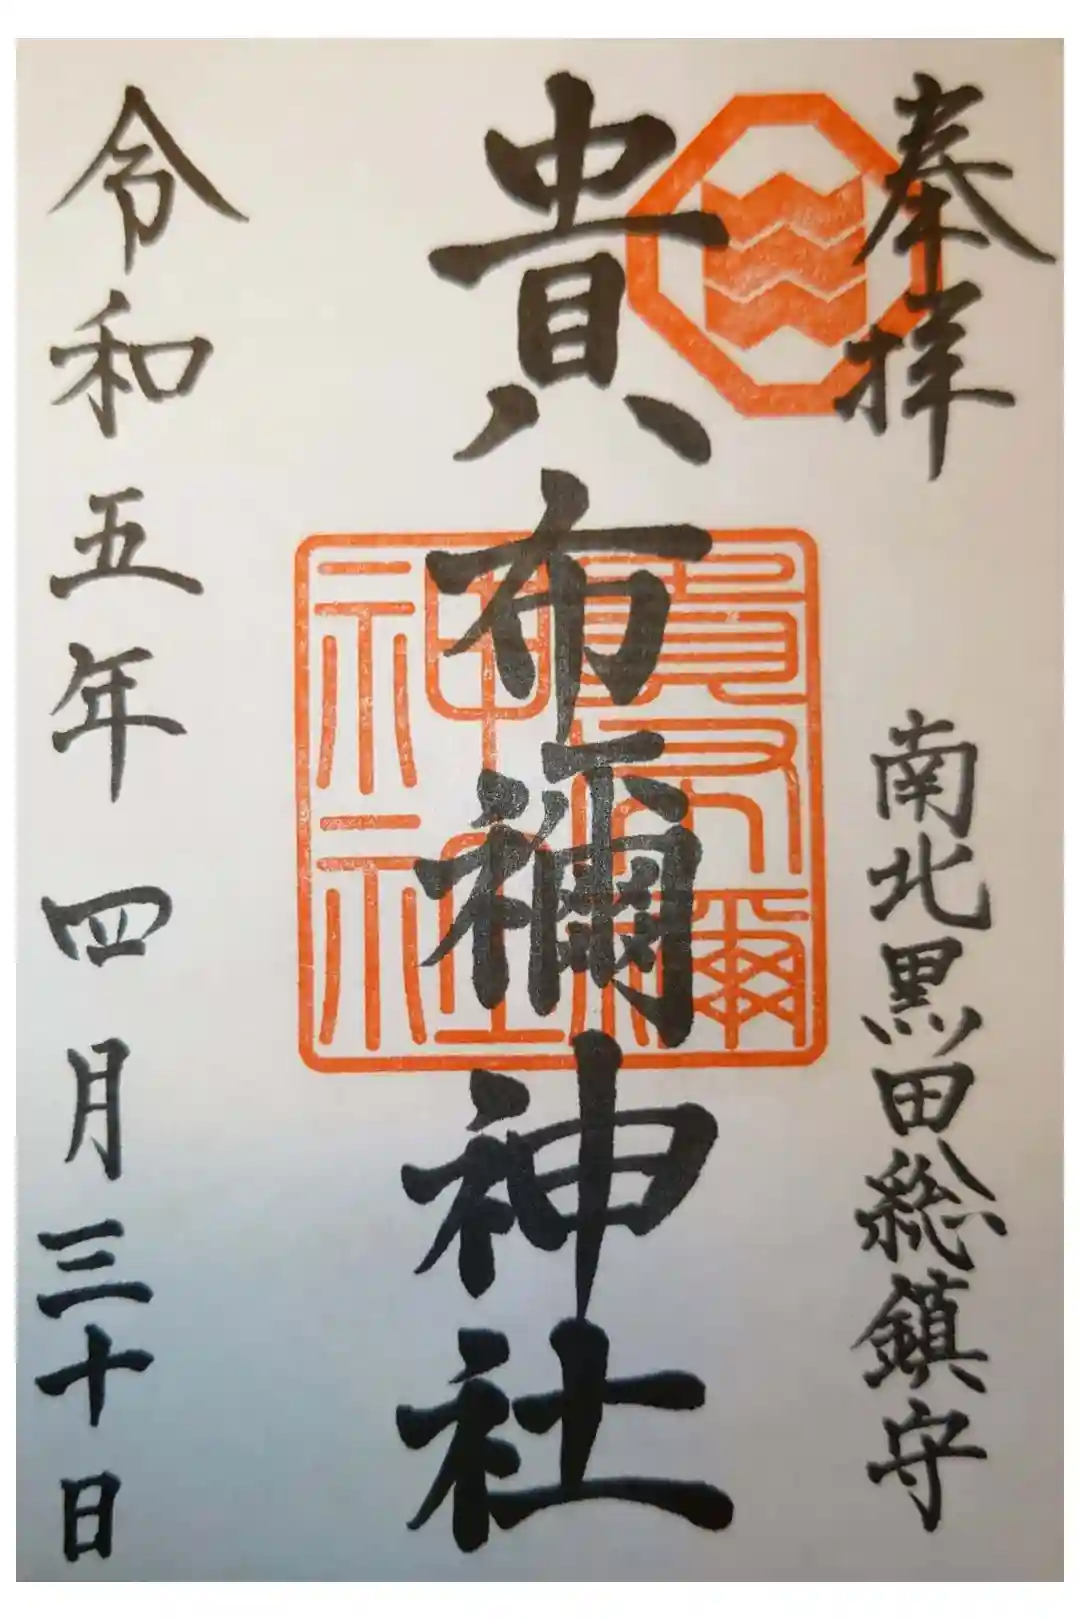 奉拝
南北黒田総鎮守
貴布禰神社
貴布禰
神社
令和五年四月三十日